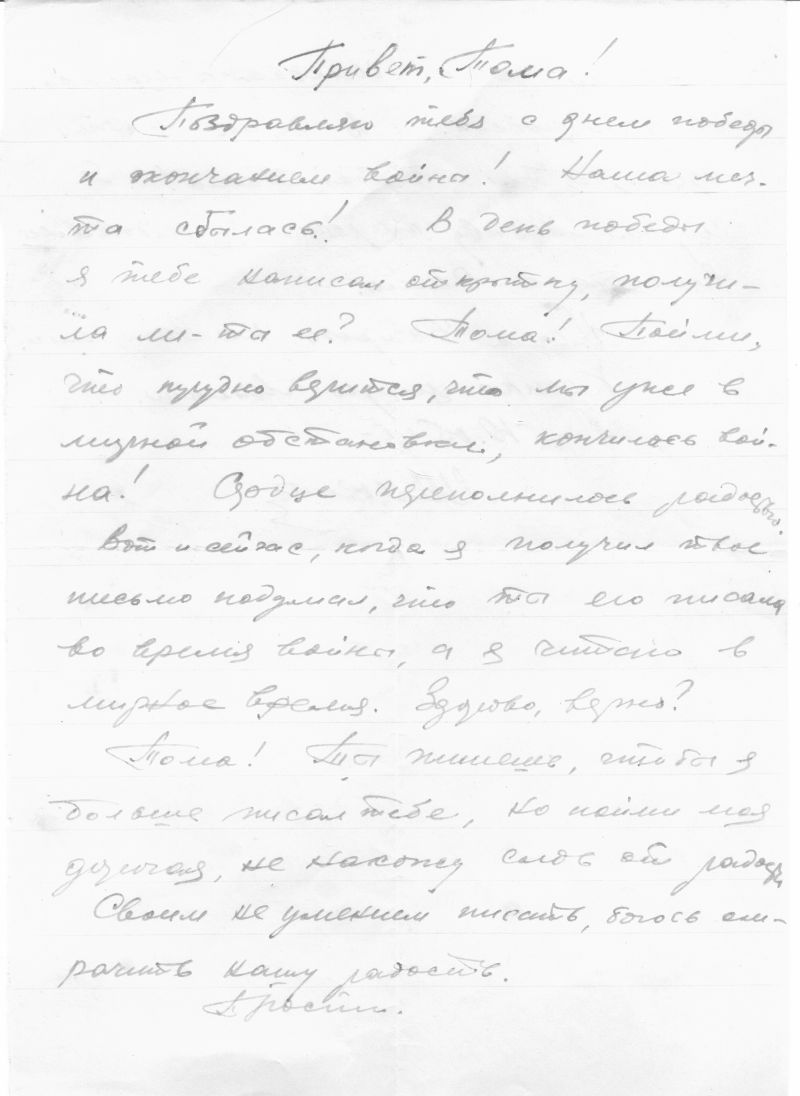 Привет, Тома!
Поздравляю тебя с днем победы
и окончанием войны! Наша меч-
та сбылась! В день победы
я тебе написал открытку, получи-
ла ли-ты ее? Тома! Пойми,
что трудно верится, что мы уже в
мирной обстановке, кончилась вой-
на! Сердце переполнилось радостью.
Вот и сейчас, когда я получил твое
письмо подумал, что ты его писала
во время войны, а я читаю в
мирное время. Здорово, верно?
Тома! Ты пишешь, чтобы я
больше писал тебе, но пойми моя
дорогая, не нахожу слов от радости
Своим не умением писать, боюсь ом-
рачить нашу радость.
Прости.